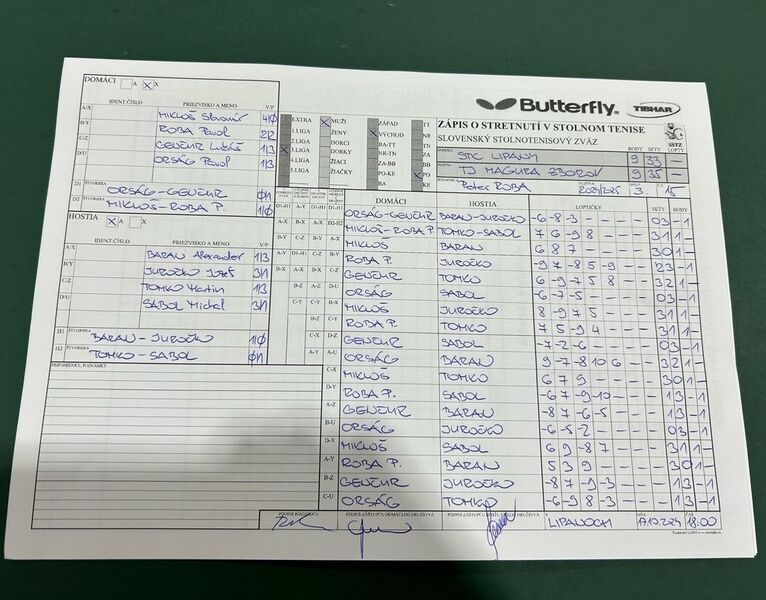 DOMÁCI A X X
IDENT.ČÍSLO PRIEZVISKO A MENO V/P
A/X MIKLOŠ Slavomír 4/0
B/Y ROBA Pavol 2/2
C/Z GENČUR Lukáš 1/3
D/U ORSÁG Pavol 1/3
D1 ŠTVORHRA ORSÁG-GENČUR 0/1
D2 ŠTVORHRA MIKLOŠ-ROBA P. 1/0
HOSTIA X A X
IDENT.ČÍSLO PRIEZVISKO A MENO V/P
A/X BARAN Alexander 1/3
B/Y JUROČKO Jozef 3/1
C/Z TOMKO Martin 1/3
D/U SABOL Michal 3/1
H1 ŠTVORHRA BARAN-JUROČKO 1/0
H2 ŠTVORHRA TOMKO-SABOL 0/1
PRIPOMIENKY, POZNÁMKY
EXTRA X MUŽI ZÁPAD TT
1.LIGA ŽENY X VÝCHOD NR
2.LIGA DORCI BA-TT TN
X 3.LIGA DORKY NR-TN ZA
4.LIGA ŽIACI ZA-BB BB
5.LIGA ŽIAČKY PO-KE X PO
BA KE
Butterfly TIBHAR
ZÁPIS O STRETNUTÍ V STOLNOM TENISE
SLOVENSKÝ STOLNOTENISOVÝ ZVÄZ
SSTZ
BODY SETY LOPTY
DOMÁCI STC LIPANY 9 33
HOSTIA TJ MAGURA ZBOROV 9 35
Peter ROBA 2024/2025 3. 15
DOMÁCI HOSTIA LOPTIČKY SETY BODY
ORSÁG-GENČUR BARAN-JUROČKO -6 -8 -3 - - 0 3 - 1
MIKLOŠ-ROBA P. TOMKO-SABOL 7 6 -9 8 - 3 1 1 -
MIKLOŠ BARAN 6 8 7 - - 3 0 1 -
ROBA P. JUROČKO -9 7 -8 5 -9 2 3 - 1
GENČUR TOMKO 6 -9 -7 5 8 3 2 1 -
ORSÁG SABOL -6 -7 -5 - - 0 3 - 1
MIKLOŠ JUROČKO 8 -9 7 5 - 3 1 1 -
ROBA P. TOMKO 7 5 -9 4 - 3 1 1 -
GENČUR SABOL -7 -2 -6 - - 0 3 - 1
ORSÁG BARAN 9 -7 -8 10 6 3 2 1 -
MIKLOŠ TOMKO 6 7 9 - - 3 0 1 -
ROBA P. SABOL -6 7 -9 -10 - 1 3 - 1
GENČUR BARAN -8 7 -6 -5 - 1 3 - 1
ORSÁG JUROČKO -6 -5 -2 - - 0 3 - 1
MIKLOŠ SABOL 6 9 -8 7 - 3 1 1 -
ROBA P. BARAN 5 3 9 - - 3 0 1 -
GENČUR JUROČKO -8 7 -9 -3 - 1 3 - 1
ORSÁG TOMKO -6 -9 8 -3 - 1 3 - 1
PODPIS ROZHODCU PODPIS ZÁSTUPCU DOMÁCEHO DRUŽSTVA PODPIS ZÁSTUPCU HOSŤ. DRUŽSTVA V LIPANOCH DŇA 17.10.2024 ČAS 18:00